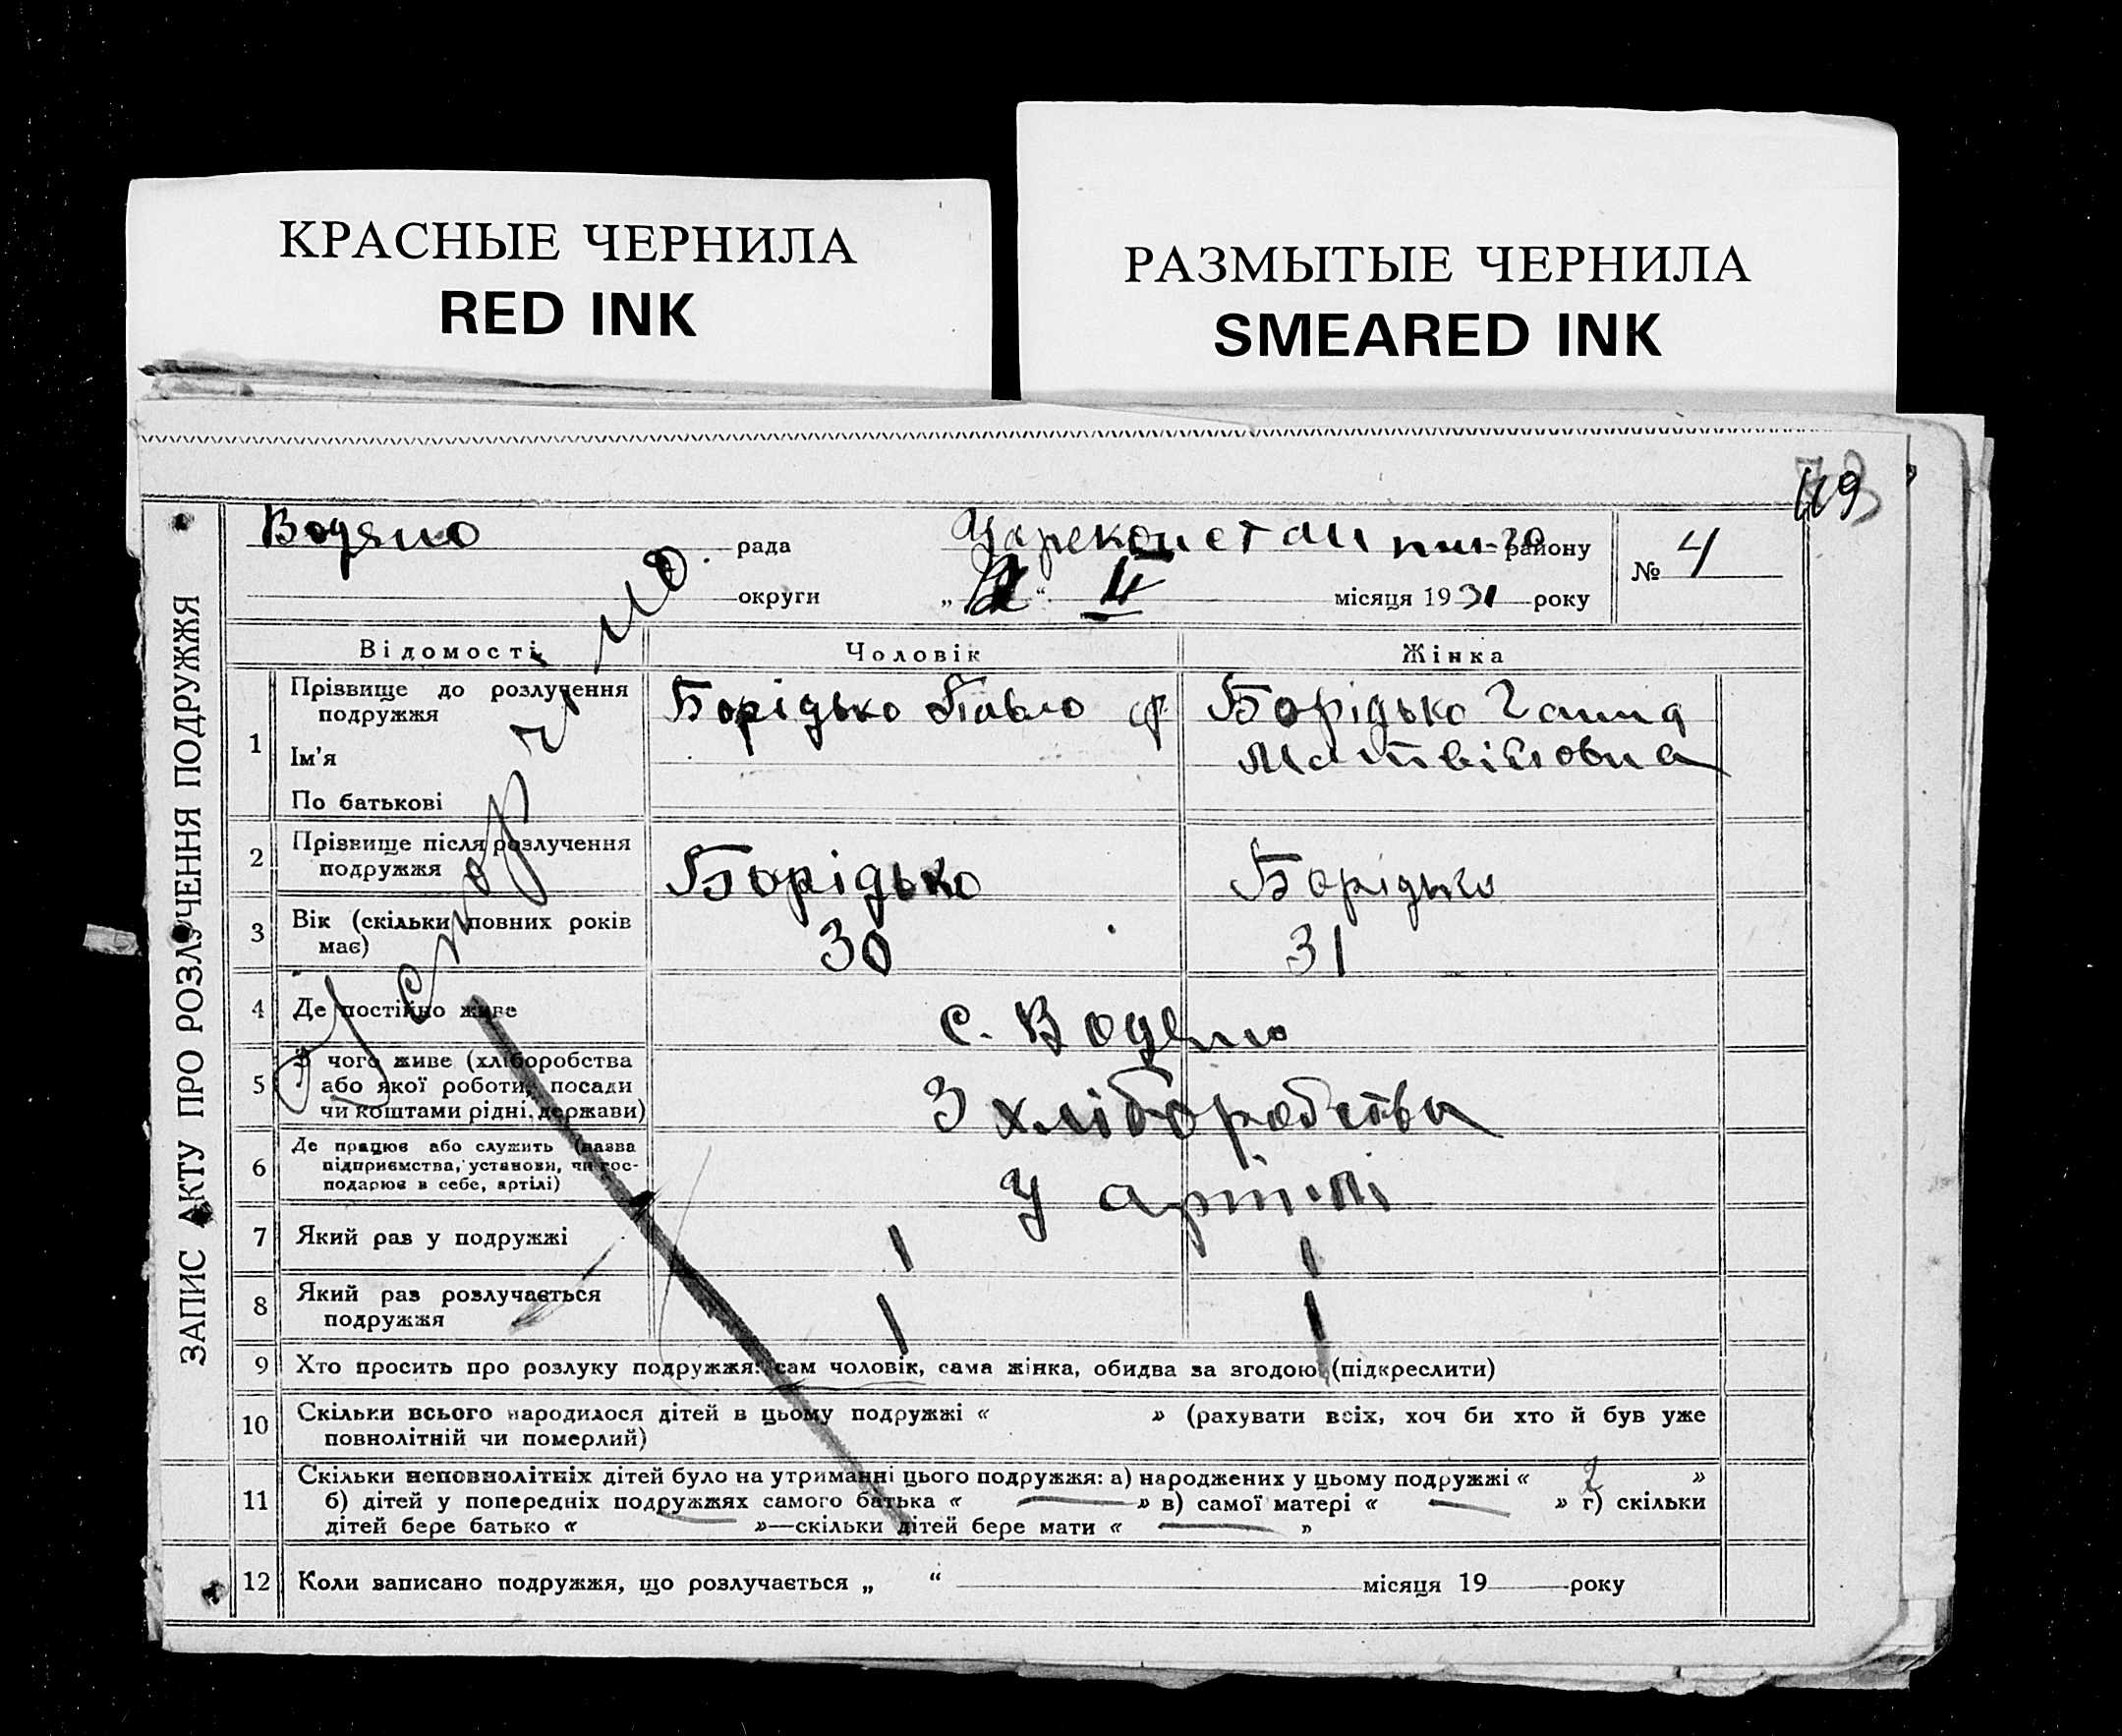 КРАСНЫЕ ЧЕРНИЛА
RED INK
РАЗМЫТЫЕ ЧЕРНИЛА
SMEARED INK
ЗАПИС АКТУ ПРО РОЗЛУЧЕННЯ ПОДРУЖЖЯ
Водяно рада району
№ 4
округи „ “ II місяця 1931 року
Відомості Чоловік Жінка
1 Прізвище до розлучення подружжя
Ім'я
По батькові
Борідько Павло ф
Борідько Ганна
Матвіївовна
2 Прізвище після розлучення
подружжя
Борідько Борідько
3 Вік (скільки повних років
має)
30 31
4 Де постійно живе
с. Водяно
5 З чого живе (хліборобства
або якої роботи, посади
чи коштами рідні, держави)
З хліборобства
6 Де працює або служить (назва
підприємства, установи, чи гос-
подарює в себе, артілі)
У артілі
7 Який раз у подружжі 1 1
8 Який раз розлучається
подружжя
1 1
9 Хто просить про розлуку подружжя: сам чоловік, сама жінка, обидва за згодою (підкреслити)
10 Скільки всього народилося дітей в цьому подружжі « » (рахувати всіх, хоч би хто й був уже
повнолітній чи померлий)
11 Скільки неповнолітніх дітей було на утриманні цього подружжя: а) народжених у цьому подружжі « 2 »
б) дітей у попередніх подружжях самого батька « — » в) самої матері « — » г) скільки
дітей бере батько « »—скільки дітей бере мати « — »
12 Коли записано подружжя, що розлучається „ “ місяця 19 року